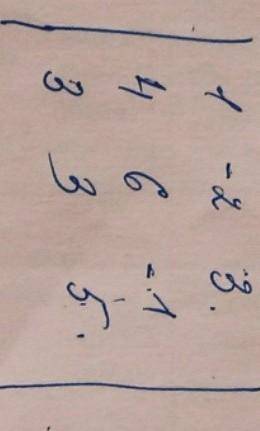 1 -2 3
4 6 -1
3 3 5